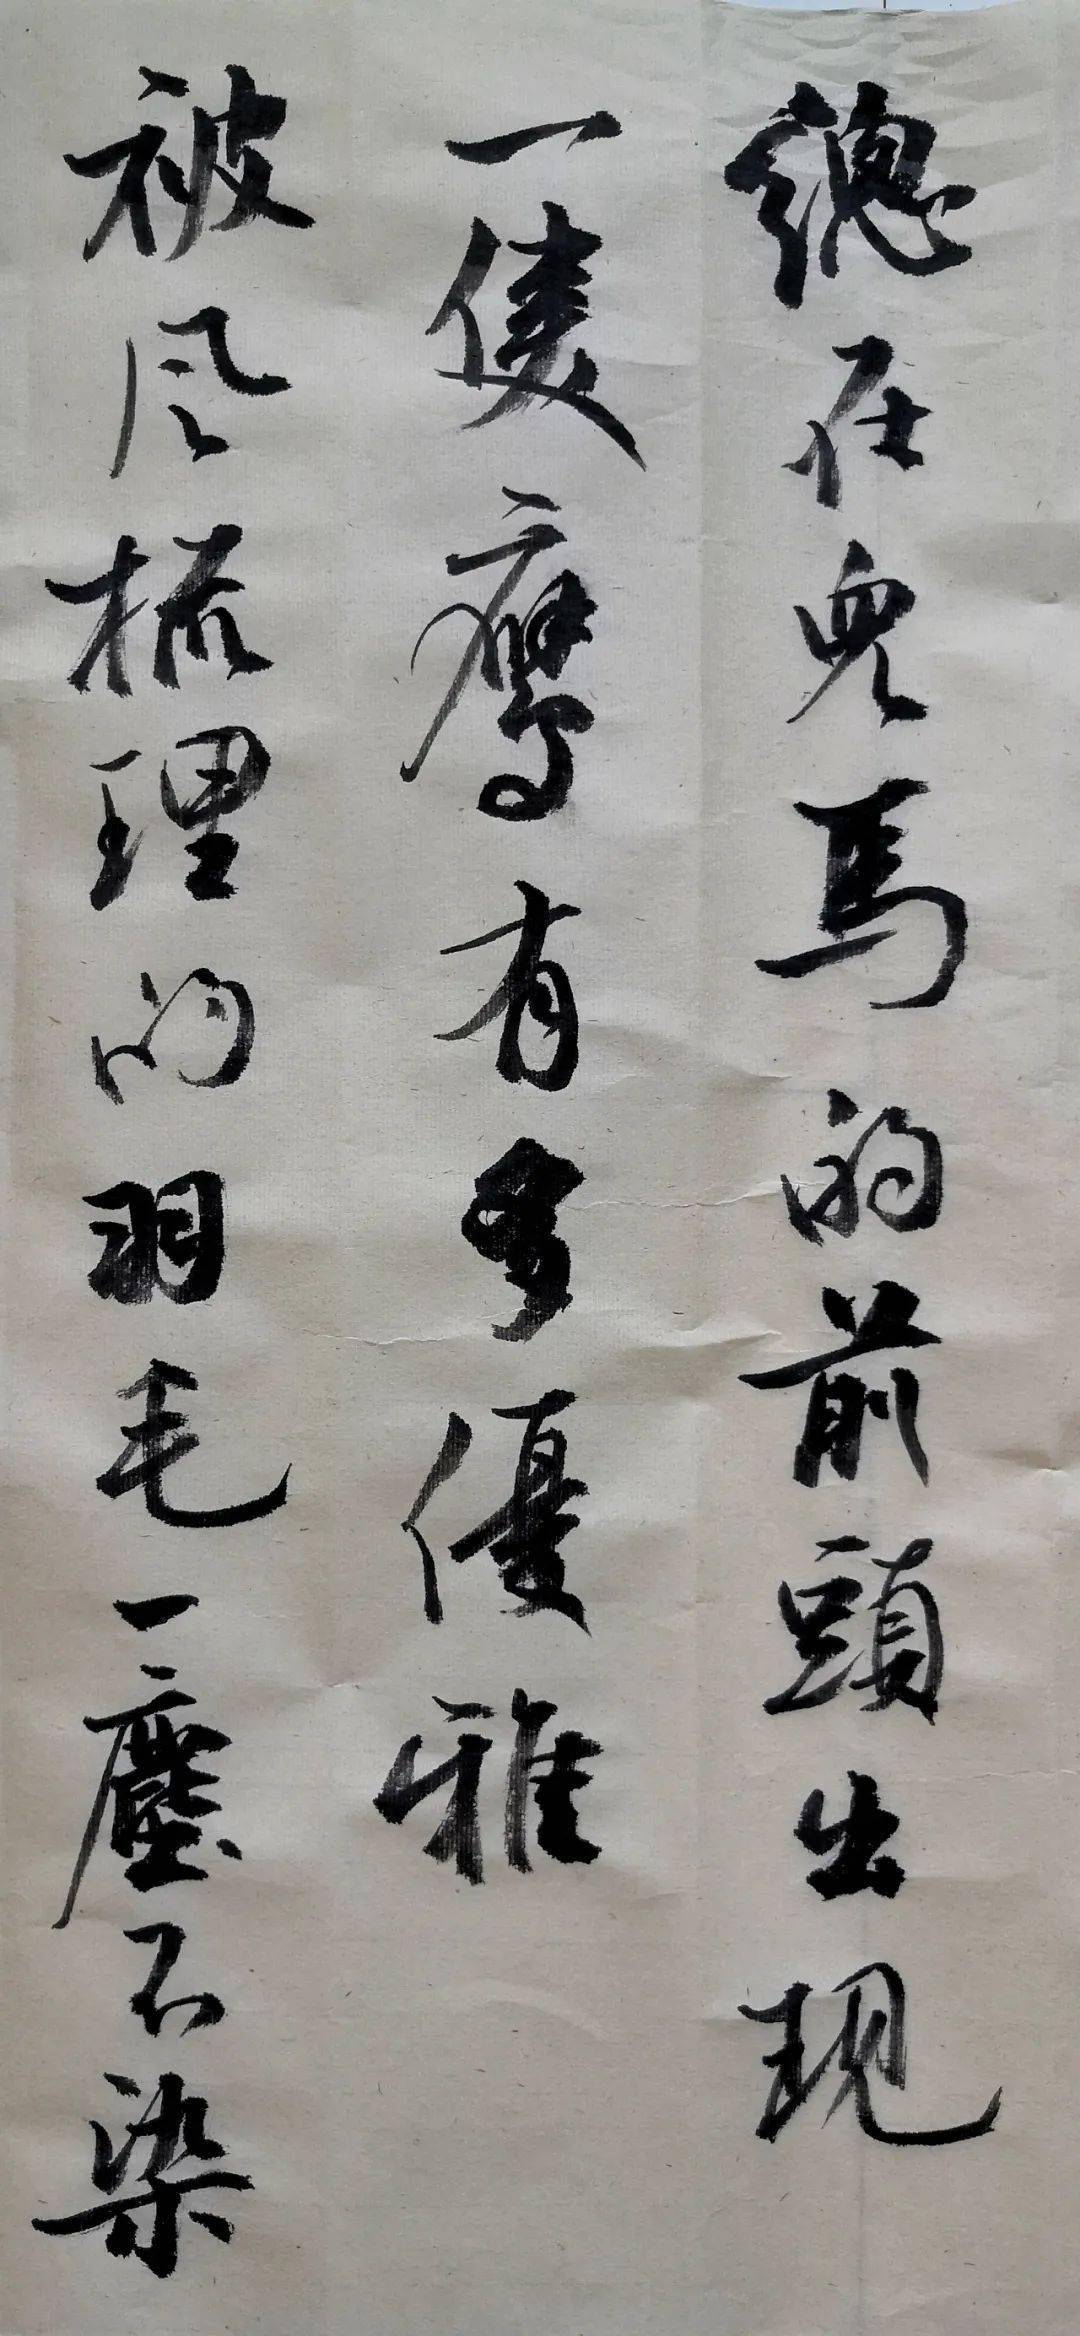 總在兒馬的前頭出现
一隻鷹有多優雅
被风梳理的羽毛一塵不染